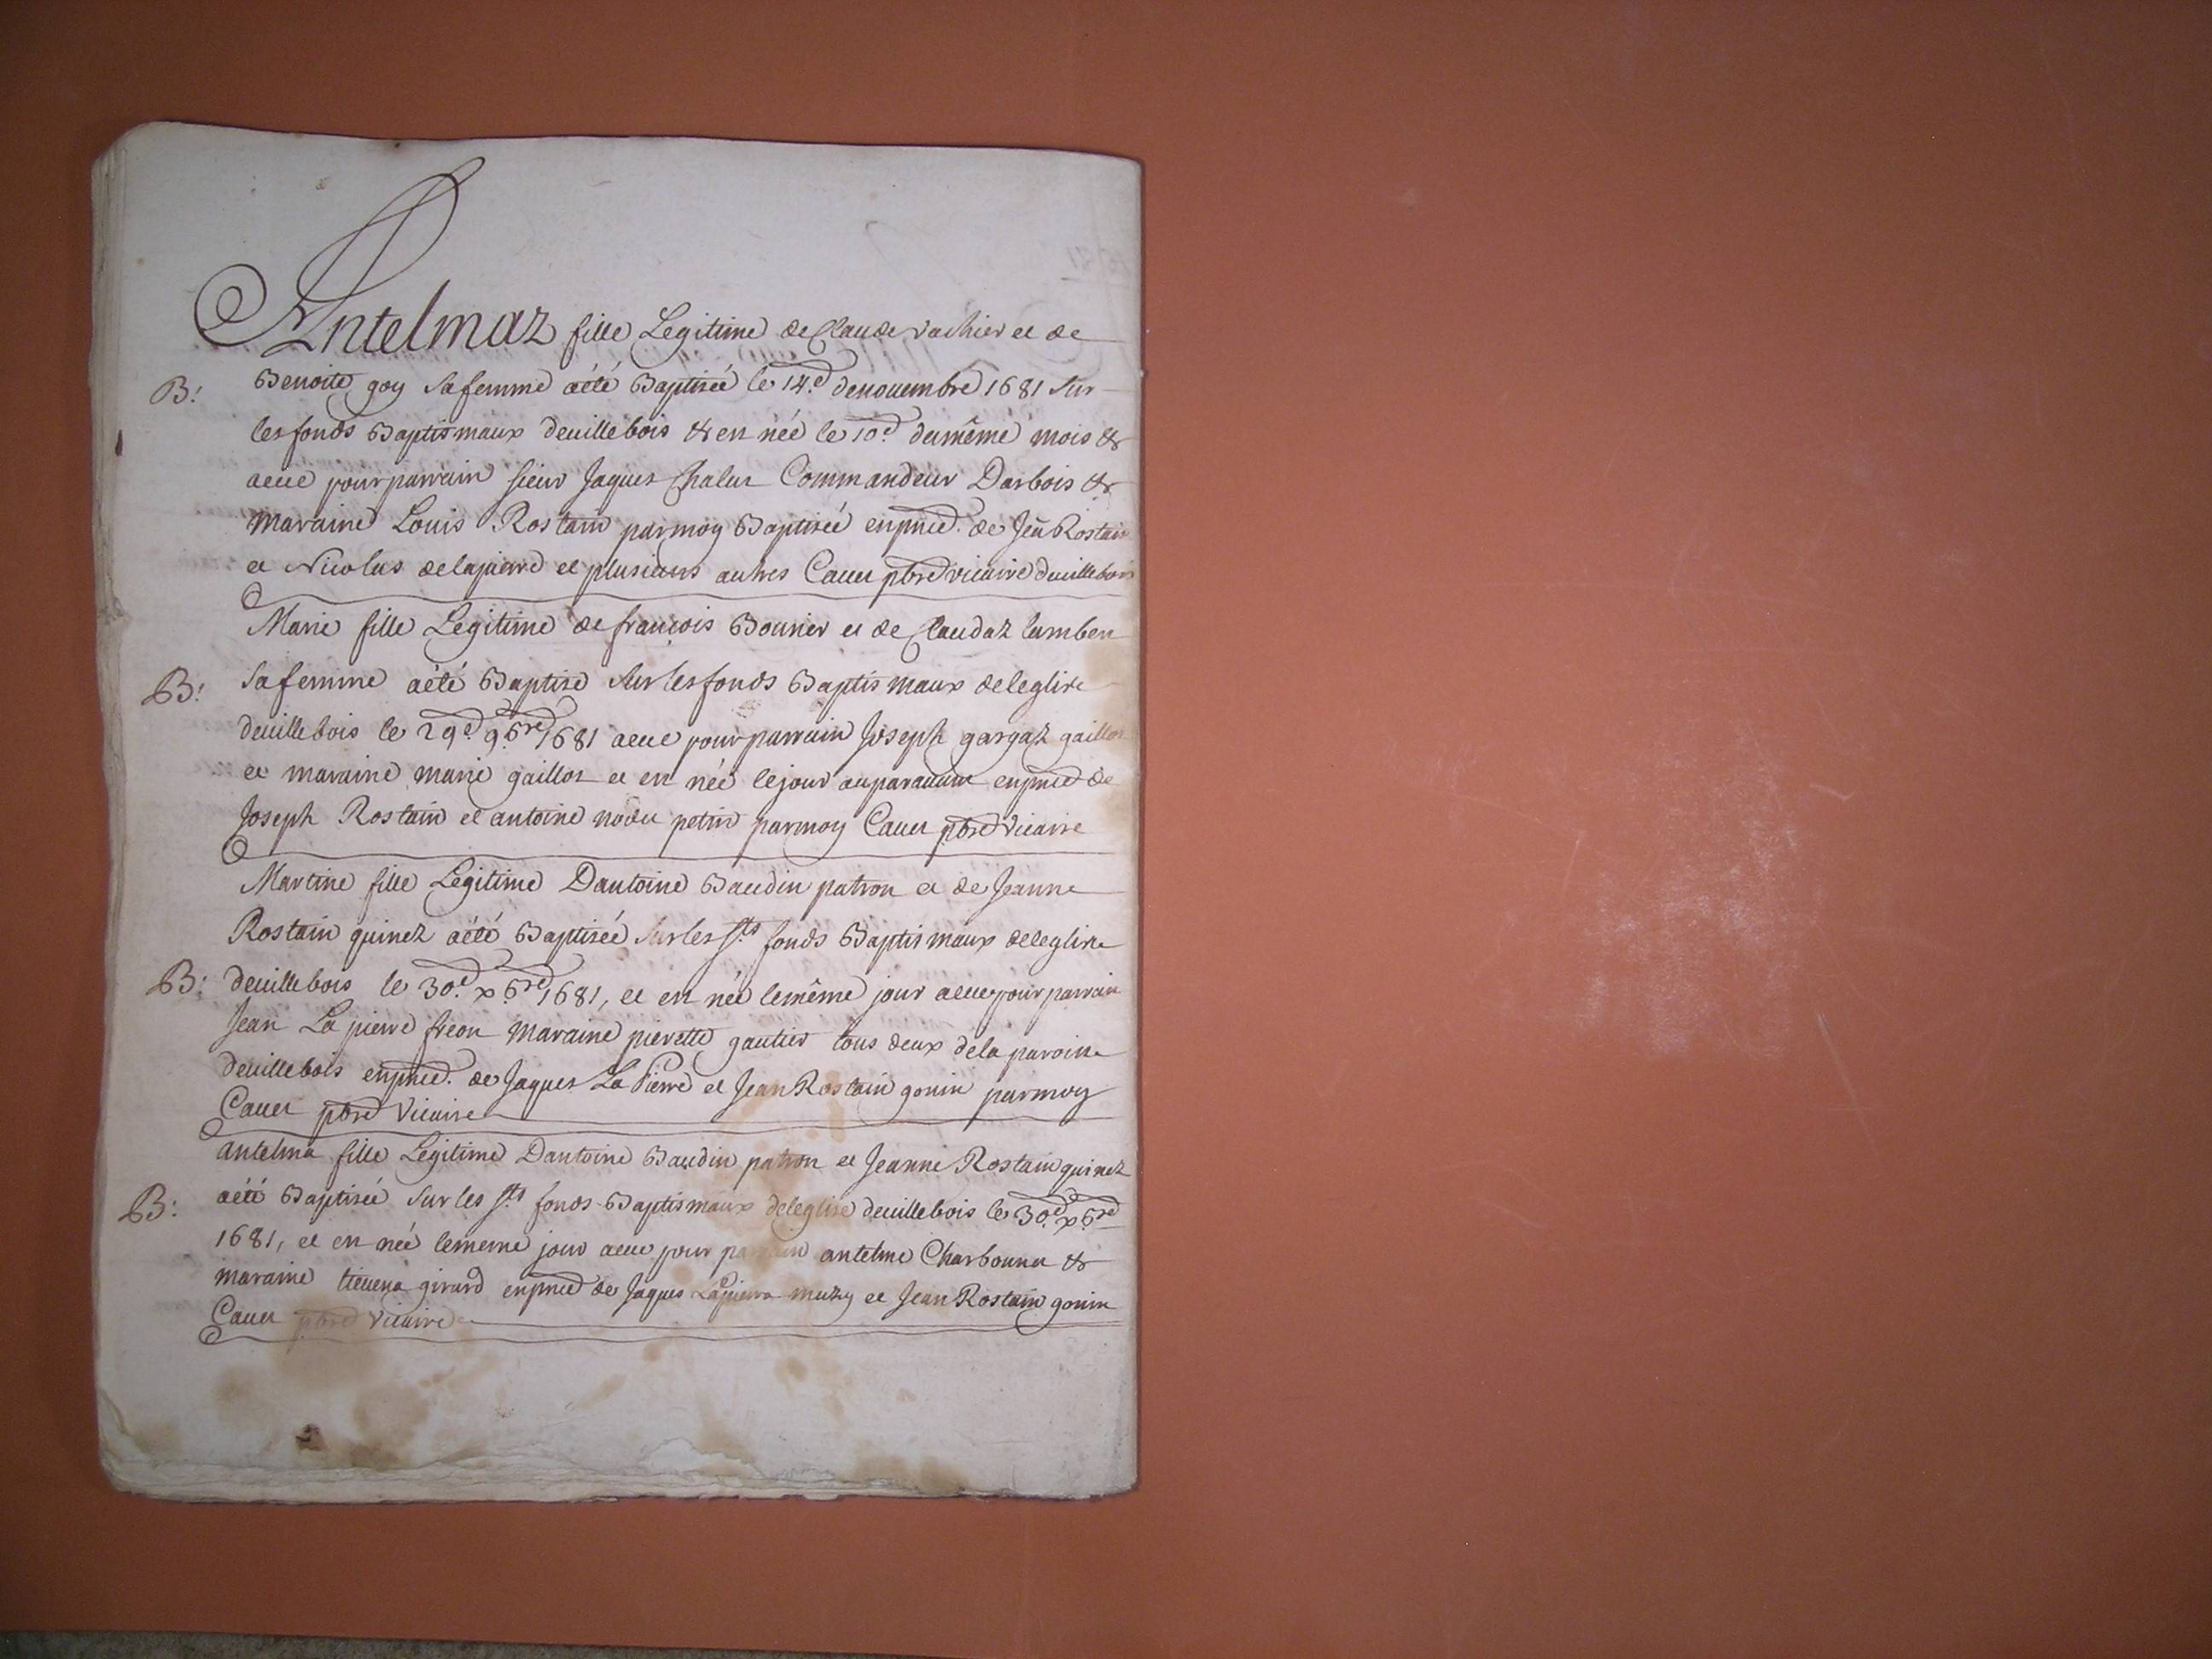 Antelmaz fille Legitime de Claude vachier et de
B: Benoite goy sa femme aété Baptisée le 14.e denouembre 1681 sur
les fonds Baptismaux deuillebois & en née le 10.e dumême mois &
aeue pour parrain sieur Jaques Chalus Commandeur Darbois &
maraine Louis Rostain parmoy Baptisée enpnce. de Jeā Rostain
et Nicolas delapierre et plusieurs autres Cauet pbre vicaire deuillebois
Marie fille Legitime de françois Bounier et de Claudaz lambert
B: sa femme aété Baptisé sur les fonds Baptismaux deleglise
deuillebois le 29.e 9.bre 1681 aeue pour parrain Joseph gargaz gaillot
et maraine marie gaillot et en née lejour auparauant enpnce de
Joseph Rostain et antoine petin parmoy Cauet pbre vicaire
Martine fille Legitime Dantoine Baudin patron et de Jeanne
Rostain quinez aété Baptisée sur les sts fonds Baptismaux deleglise
B: deuillebois le 30.e x.bre 1681, et en née lemême jour aeue pour parrain
Jean La pierre freon maraine pierette gautier tous deux dela paroisse
deuillebois enpnce. de Jaques La Pierre et Jean Rostain gonin parmoy
Cauet pbre vicaire
antelma fille Legitime Dantoine Baudin patron et Jeanne Rostain quinez
B: aété Baptisée sur les sts fonds Baptismaux deleglise deuillebois le 30.e x.bre
1681, et en née lememe jour aeue pour parrain antelme Charbonnet &
maraine tieuena girard enpnce de Jaques Lapierre muzy et Jean Rostain gonin
Cauet pbre vicaire